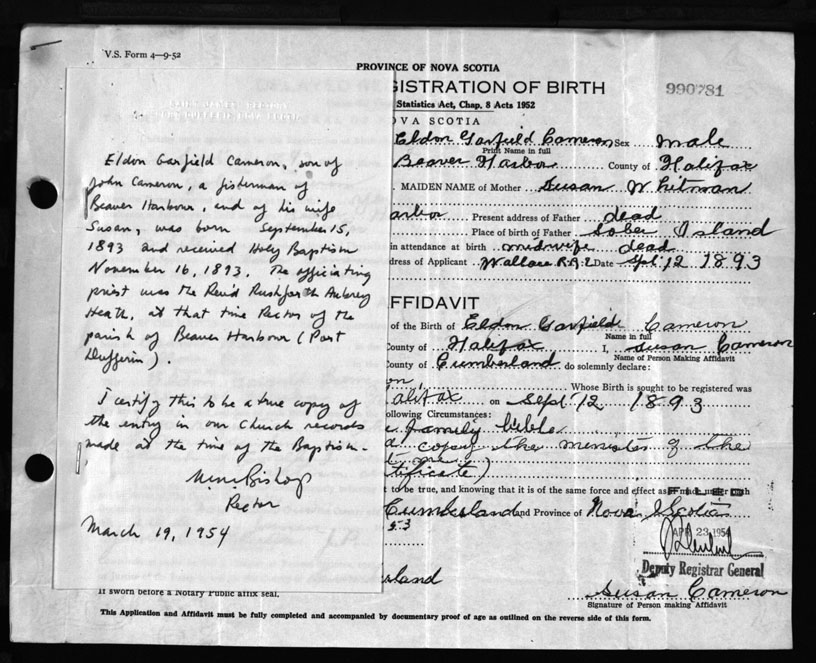 V.S. Form 4—9-52
PROVINCE OF NOVA SCOTIA
GISTRATION OF BIRTH
990781
Statistics Act, Chap. 8 Acts 1952
NOVA SCOTIA
Eldon Garfield Cameron, son of
John Cameron, a fisherman of
Beaver Harbour, and of his wife
Susan, was born September 15,
1893 and received Holy Baptism
November 16, 1893. The officiating
priest was the Rev'd Rushforth Aubrey
Heath, at that time Rector of the
parish of Beaver Harbour (Port
Dufferin).
I certify this to be a true copy of
the entry in our Church records
made at the time of the Baptism.
Bishop
Rector
March 19, 1954
Eldon Garfield Cameron Sex male
Print Name in full
Beaver Harbor County of Halifax
MAIDEN NAME of Mother Susan Whitman
arbor Present address of Father dead
Place of birth of Father Sober Island
in attendance at birth midwife dead
dress of Applicant Wallace R.R.2 Date Spt 12 1893
AFFIDAVIT
of the Birth of Eldon Garfield Cameron
Name in full
County of Halifax I, Susan Cameron
Name of Person Making Affidavit
County of Cumberland do solemnly declare:
on, Whose Birth is sought to be registered was
alifax on Sept 12 1893
ollowing Circumstances:
family bible
copy the minister of the
tificate)
t to be true, and knowing that it is of the same force and effect as if made under oath
Cumberland and Province of Nova Scotia
53
APR 23 1954
Deputy Registrar General
rland
Susan Cameron
Signature of Person making Affidavit
If sworn before a Notary Public affix seal.
This Application and Affidavit must be fully completed and accompanied by documentary proof of age as outlined on the reverse side of this form.